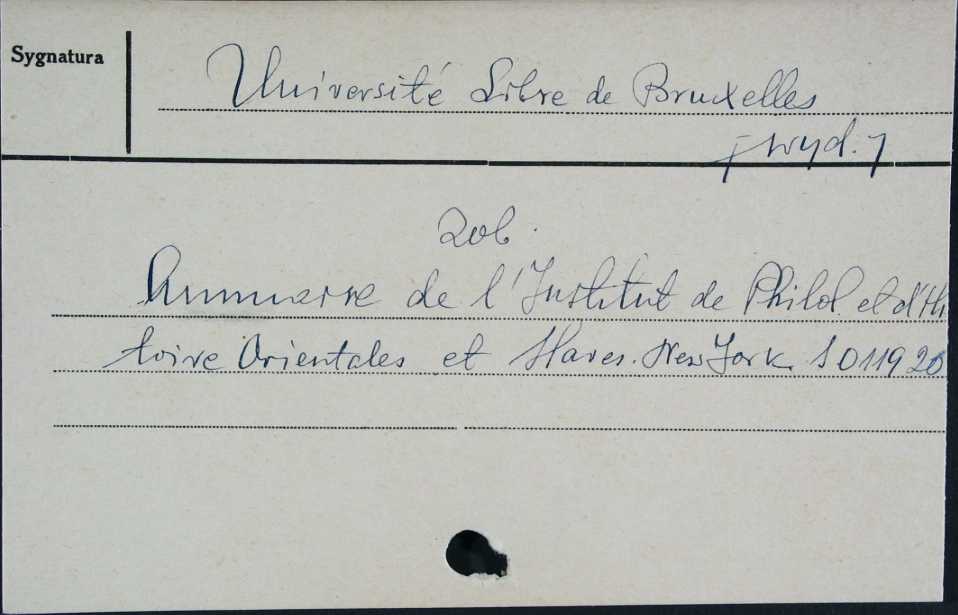 Sygnatura
Université Libre de Bruxelles
[wyd.]
Zob.
Annuaire de l'Institut de Philol. et d'His
toire Orientales et Slaves. New York.